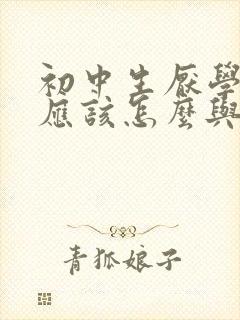 初中生厌學
應該怎麽與
青狐娘子